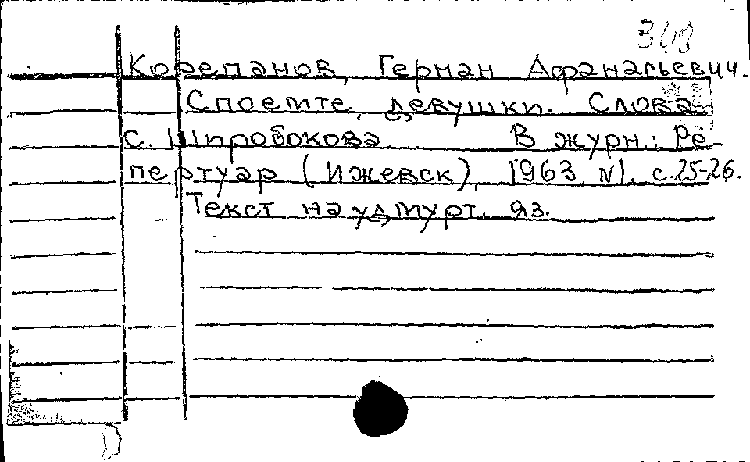 348
Корепанов, Герман Афанасьевич.
Споемте, девушки. Слова
с. Широбокова. В журн.: Ре-
пертуар (Ижевск), 1963, №1, с.25-26.
Текст на удмурт. яз.